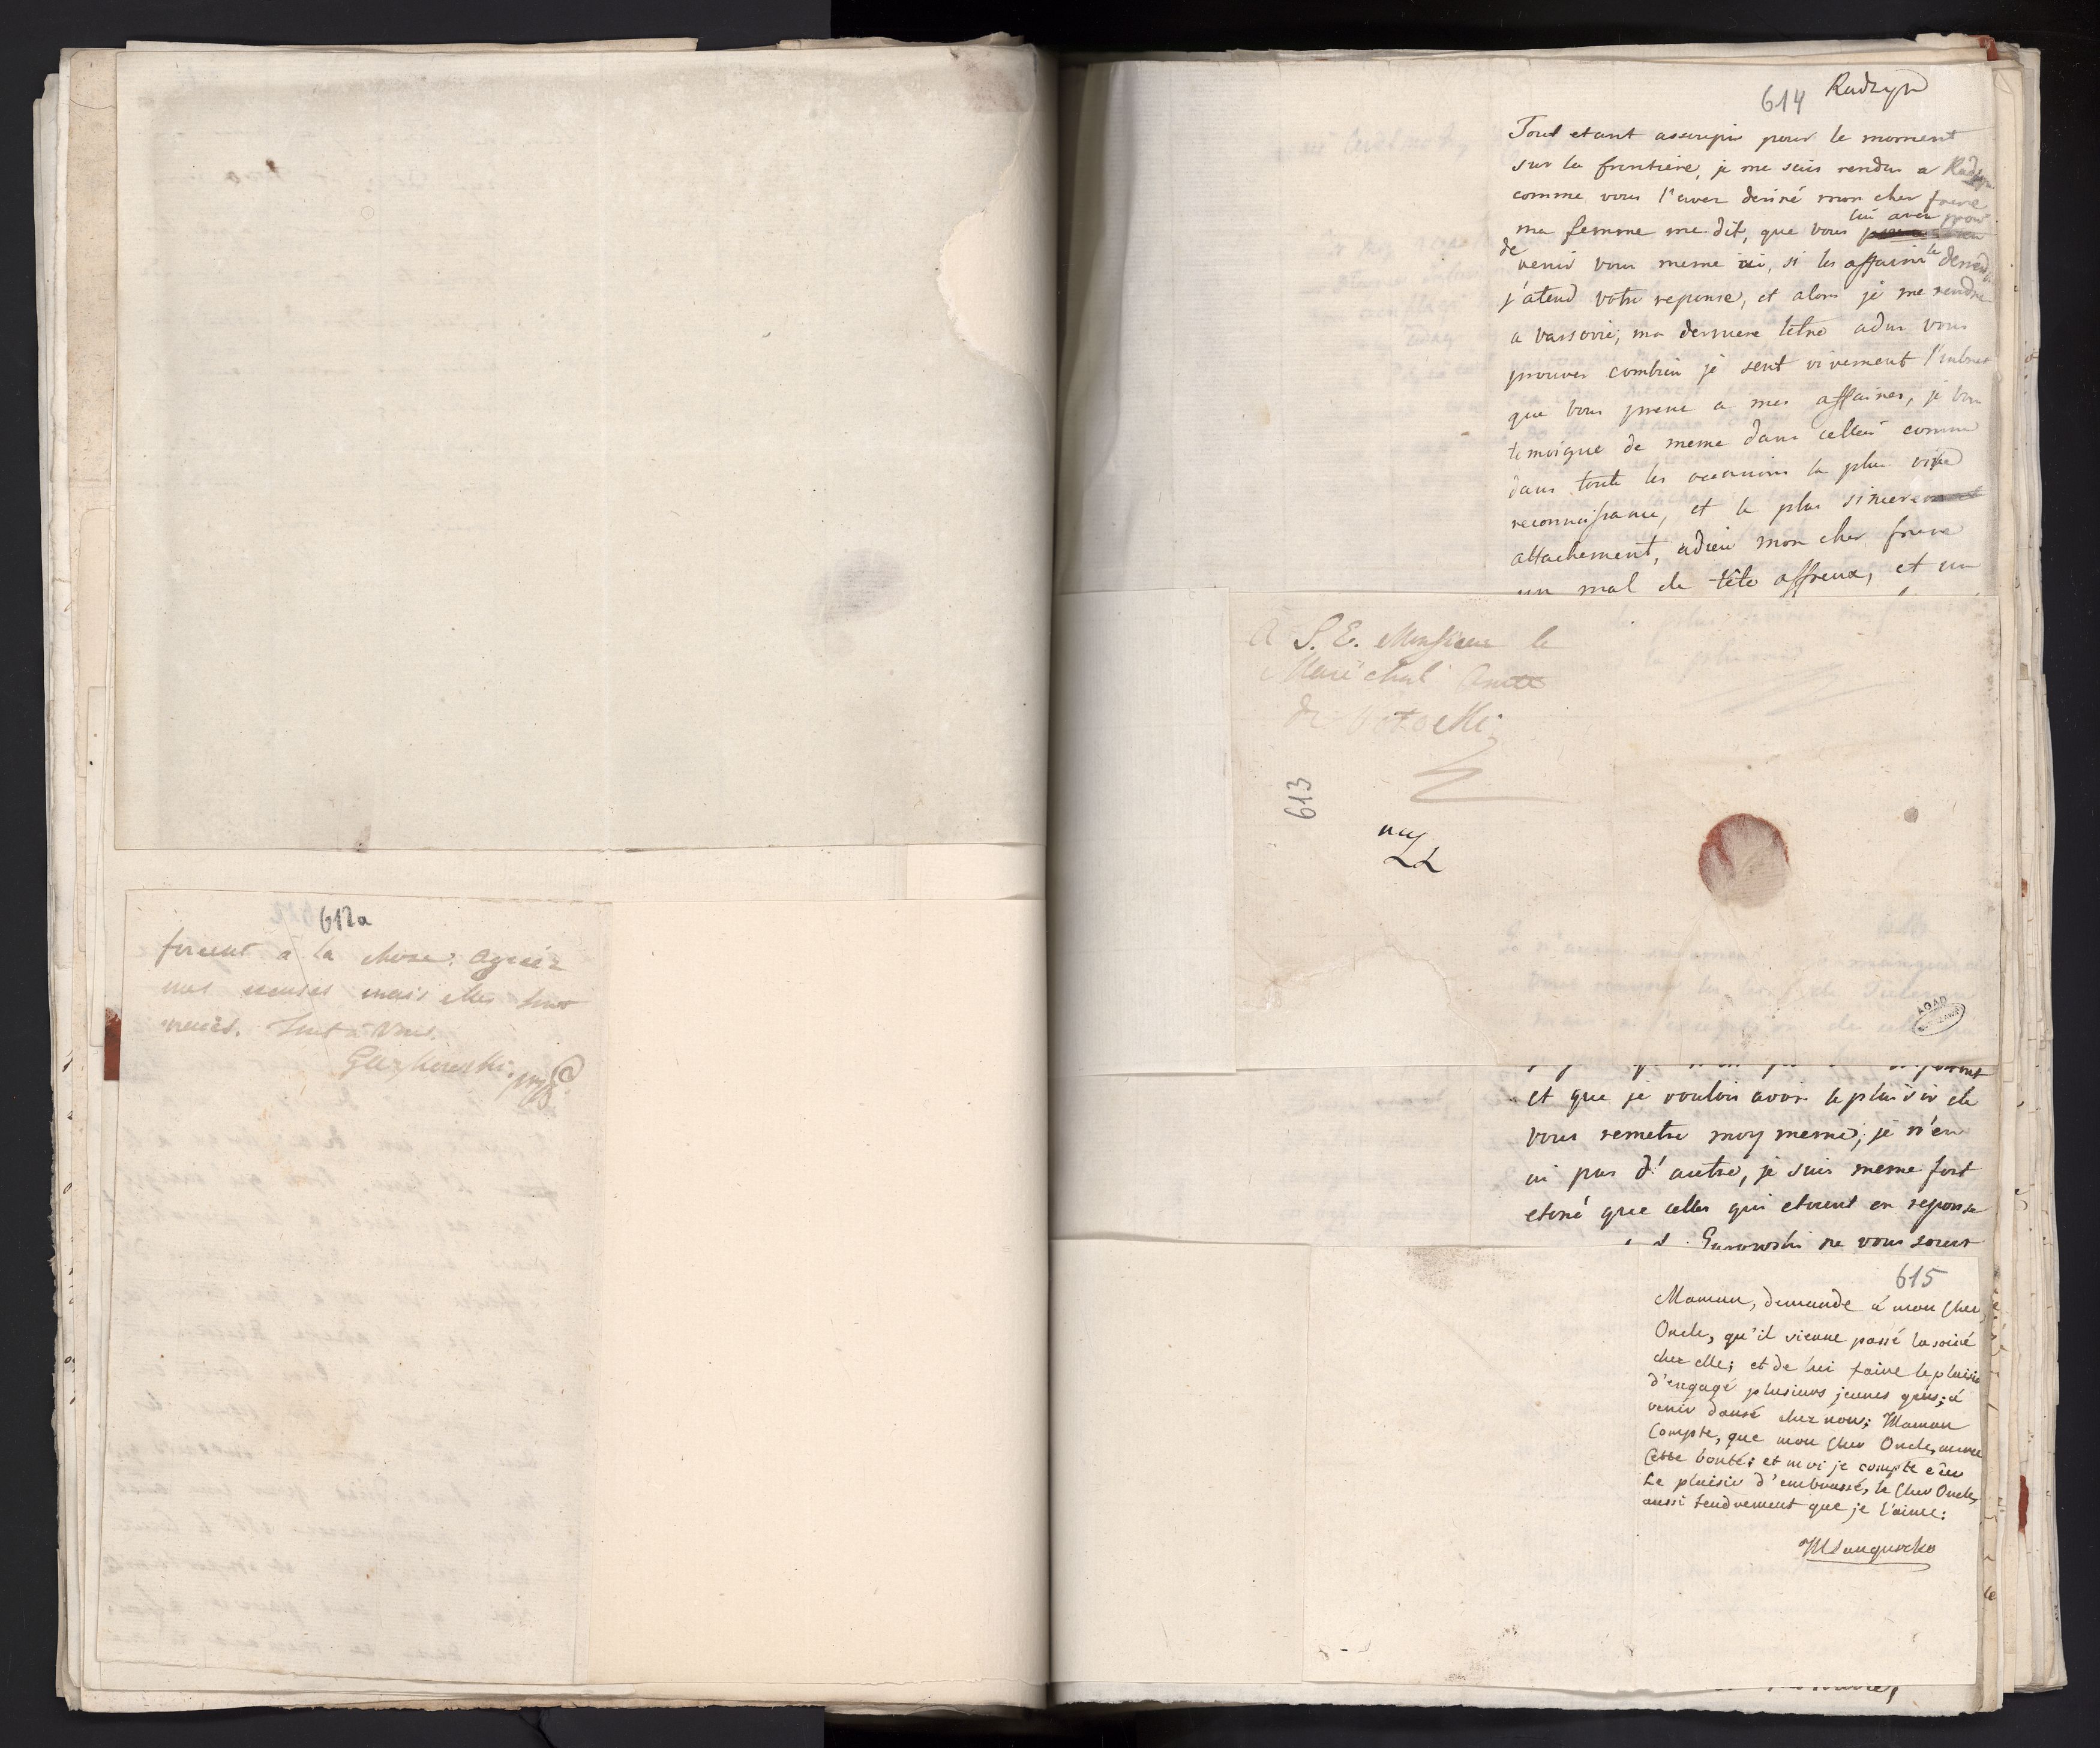 612a
furent a la chose: agréez
mes excuses mais elles sont
vraies. Tout à Vous.
614 Radzyn
Tout etant assoupi pour le moment
sur la frontiere, je me suis rendu a Radzyn
comme vous l'avez desiré mon cher frere
ma femme me dit, que vous lui avez
de venir vous meme ici, si les affaires le
j'atend votre reponse, et alors je me rendre
a varsovie; ma derniere letre a du vous
prouver combien je sent vivement l'interet
que vous prene a mes affaires, je vous
temoigne de meme dans celleci comme
dans toute les occasions la plus vive
reconnaissance, et le plus sincere
attachement, adieu mon cher frere
un mal de tête affreux, et un
A S. E. Monsieur le
Maréchal Comte
de Potocki
613
et que je voulois avoir le plaisir de
vous remetre moy meme; je n'en
ai pas d'autre, je suis meme fort
etoné que celles qui etoient en reponse
Gurowski ne vous soient
615
Maman, demande à mon cher
Oncle, qu'il vienne passé la soiré
chez elle; et de lui faire le plaisir
d'engagé plusieurs jeunes gens; à
venir dansé chez nous; Maman
Compte, que mon Cher Oncle, aura
Cette bonté; et moi je compte
Le plaisir d'embrassé, le Cher Oncle,
aussi tendrement que je l'aime: